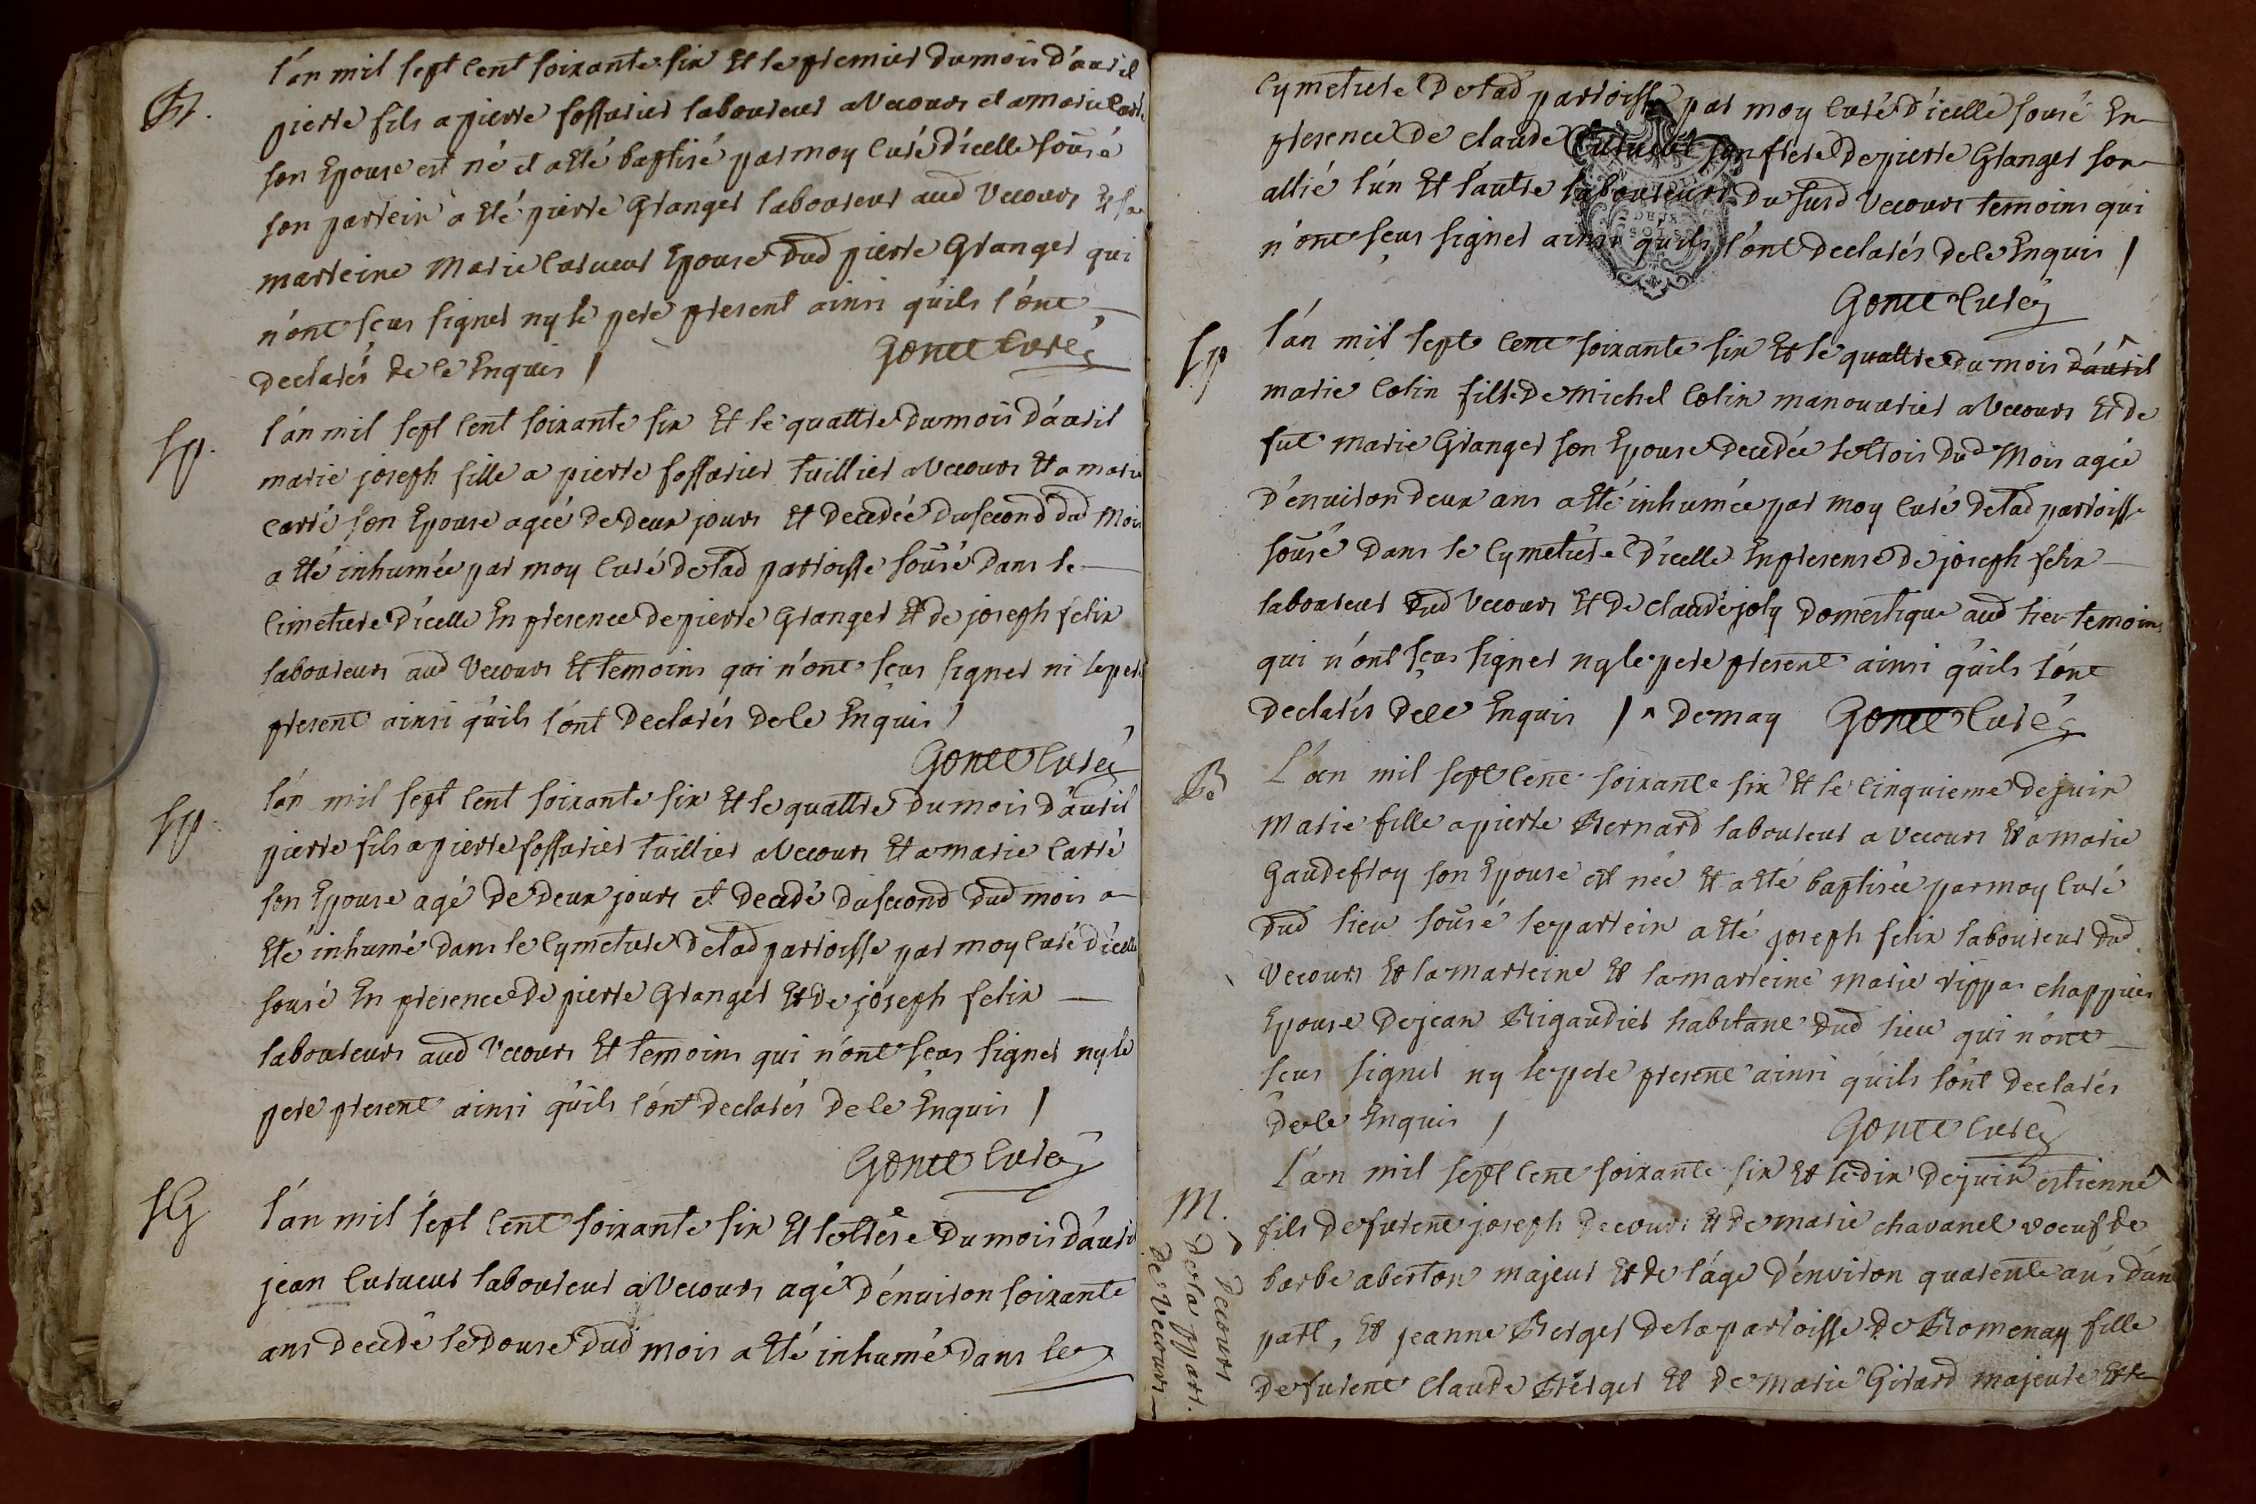 Bt.
l'an mil sept cent soixante six Et le premier du mois d'avril
pierre fils a pierre fossurier laboureur a Vecours et a marie Carré
son Epouse est né et a Eté baptisé par moy curé d'icelle sousé
son parrein a Eté pierre Granger laboureur aud Vecours Et sa
marreine Marie Curueur Epouse dud pierre Granger qui
n'ont sçus signer ny le pere present ainsi qu'ils l'ont
declarés de ce Enquis /
Gonet Curé
Sp.
l'an mil sept cent soixante six Et le quattre du mois d'avril
marie joseph fille a pierre fossurier tuillier a Vecours Et a marie
carré son Epouse agée de deux jours Et decedée du second dud Mois
a Eté inhumée par moy Curé de lad parroisse sousé dans le
cimetiere d'icelle En presence de pierre Granger Et de joseph felix
laboureurs aud Vecours Et temoins qui n'ont sçus signer ni le pere
present ainsi qu'ils l'ont declarés de ce Enquis /
Gonet Curé
Sp.
l'an mil sept cent soixante six Et le quattre du mois d'avril
pierre fils a pierre fossurier tuillier a Vecours Et a marie Carré
son Epouse agé de deux jours et decedé du second dud mois a
Eté inhumé dans le Cymetiere de lad parroisse par moy curé d'icelle
sousé En presence de pierre Granger Et de joseph felix
laboureurs aud Vecours Et temoins qui n'ont sçus signer ny le
pere present ainsi qu'ils l'ont declarés de ce Enquis /
Gonet Curé
SG
l'an mil sept cent soixante six Et le du mois d'avril
jean Curueur laboureur a Vecours agé d'environ soixante
ans decedé le douse dud mois a Eté inhumé dans le
Cymetiere de lad parroisse par moy Curé d'icelle sousé En
presence de claude Curueur son frere de pierre Granger son
allié l'un Et l'autre laboureurs du susd Vecours temoins qui
n'ont sçus signer ainsi qu'ils l'ont declarés de ce Enquis /
Gonet Curé
Sp
l'an mil sept cent soixante six Et le quattre du mois d'avril ^
marie Colin fille de michel Colin manouvrier a Vecours Et de
fut marie Granger son Epouse decedée le trois dud Mois agée
d'environ deux ans a Eté inhumée par moy Curé de lad parroisse
sousé dans le Cymetiere d'icelle En presense de joseph felix
laboureur dud Vecours Et de claude joly domestique aud lieu temoins
qui n'ont sçus signer ny le pere present ainsi qu'ils l'ont
declarés de ce Enquis / ^ de may Gonet Curé
B
L'an mil sept cent soixante six Et le cinquieme de juin
Marie fille a pierre Bernard laboureur a Vecours Et a Marie
Gaudefroy son Epouse est née Et a Eté baptisée par moy Curé
dud lieu sousé le parrein a Eté joseph felix laboureur dud
Vecours Et la marreine Et la marreine Marie rippas chappuis
Epouse de jean Rigaudier habitant dud lieu qui n'ont
scus signer ny le pere present ainsi qu'ils l'ont declarés
de ce Enquis /
Gonet Curé
M.
L'an mil sept cent soixante six Et le dix de juin estienne ^
fils de furent joseph decours Et de marie chavanel voeuf de
barbe aberton majeur Et de l'age d'environ quarente ans d'une
part, Et jeanne Berger de la parroisse de Romenay fille
de furent claude Berger Et de Marie Girard majeure Et de
^ Decours
de la ppart.
de Vecours